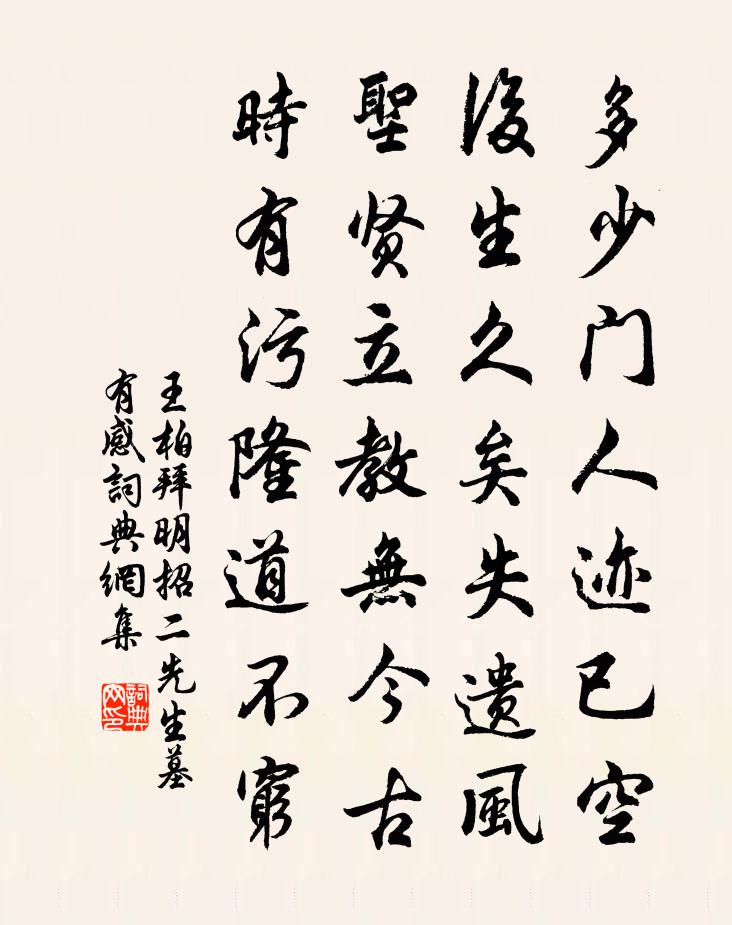 多少門人迹已空
後生久矣失遺風
聖贤立教無今古
時有污隆道不窮
王柏拜明招二先生墓
有感詞典網集
詞典
网印